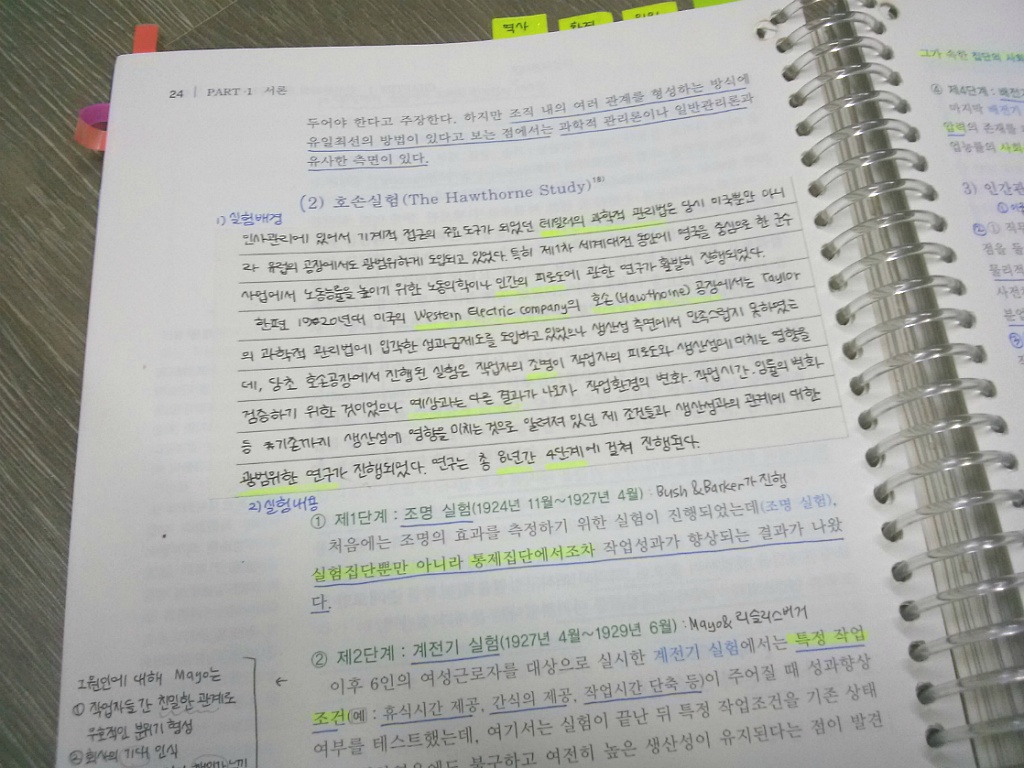 역사
환경
24 | PART 1 서론
두어야 한다고 주장한다. 하지만 조직 내의 여러 관계를 형성하는 방식에
유일최선의 방법이 있다고 보는 점에서는 과학적 관리론이나 일반관리론과
유사한 측면이 있다.
(2) 호손실험(The Hawthorne Study)18)
1) 실험배경
인사관리에 있어서 기계적 접근의 주요 도구가 되었던 테일러의 과학적 관리법은 당시 미국뿐만 아니
라 유럽의 공장에서도 광범위하게 도입되고 있었다. 특히 제1차 세계대전 동안에 영국을 중심으로 한 군수
사업에서 노동능률을 높이기 위한 노동의학이나 인간의 피로도에 관한 연구가 활발히 진행되었다.
한편 1920년대 미국의 Western Electric company의 호손(Hawthorne) 공장에서는 Taylor
의 과학적 관리법에 입각한 성과급제도를 도입하고 있었으나 생산성 측면에서 만족스럽지 못하였는
데, 당초 호손공장에서 진행된 실험은 작업자의 조명이 작업자의 피로도와 생산성에 미치는 영향을
검증하기 위한 것이었으나 예상과는 다른 결과가 나오자 작업환경의 변화. 작업시간. 임률의 변화
등 기존까지 생산성에 영향을 미치는 것으로 알려져 있던 제 조건들과 생산성과의 관계에 대한
광범위한 연구가 진행되었다. 연구는 총 8년간 4단계에 걸쳐 진행된다.
2) 실험내용
① 제1단계 : 조명 실험(1924년 11월~1927년 4월) : Bush & Barker가 진행
처음에는 조명의 효과를 측정하기 위한 실험이 진행되었는데(조명 실험),
실험집단뿐만 아니라 통제집단에서조차 작업성과가 향상되는 결과가 나왔
다.
② 제2단계 : 계전기 실험(1927년 4월~1929년 6월) : Mayo & 리슬리스버거
이후 6인의 여성근로자를 대상으로 실시한 계전기 실험에서는 특정 작업
조건(예 : 휴식시간 제공, 간식의 제공, 작업시간 단축 등)이 주어질 때 성과향상
여부를 테스트했는데, 여기서는 실험이 끝난 뒤 특정 작업조건을 기존 상태
에도 불구하고 여전히 높은 생산성이 유지된다는 점이 발견
그 원인에 대해 Mayo는 ←
① 작업자들 간 친밀한 관계로
우호적인 분위기 형성
② 회사의 기대 인식
그가 속한 집단의 사회
④ 제4단계 : 배전기
마지막 배전기
압력의 존재를
업능률의 사회
3) 인간관